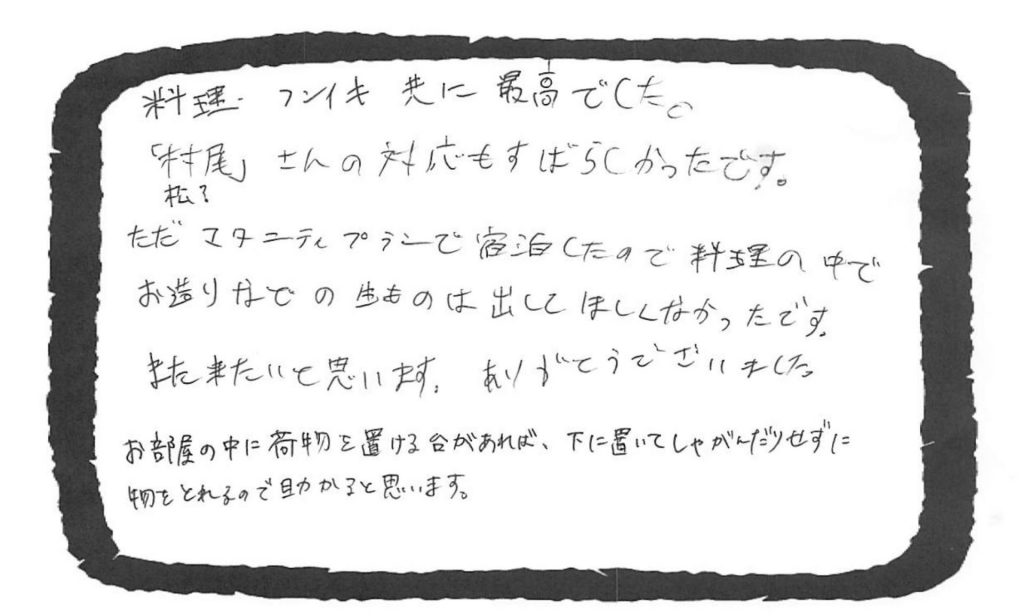 料理・フンイキ 共に 最高でした。
「村尾」さんの対応もすばらしかったです。
松？
ただ マタニティプランで宿泊したので 料理の中で
お造りなどの生ものは出してほしくなかったです。
また来たいと思います。ありがとうございました。
お部屋の中に荷物を置ける台があれば、下に置いてしゃがんだりせずに
物をとれるので助かると思います。